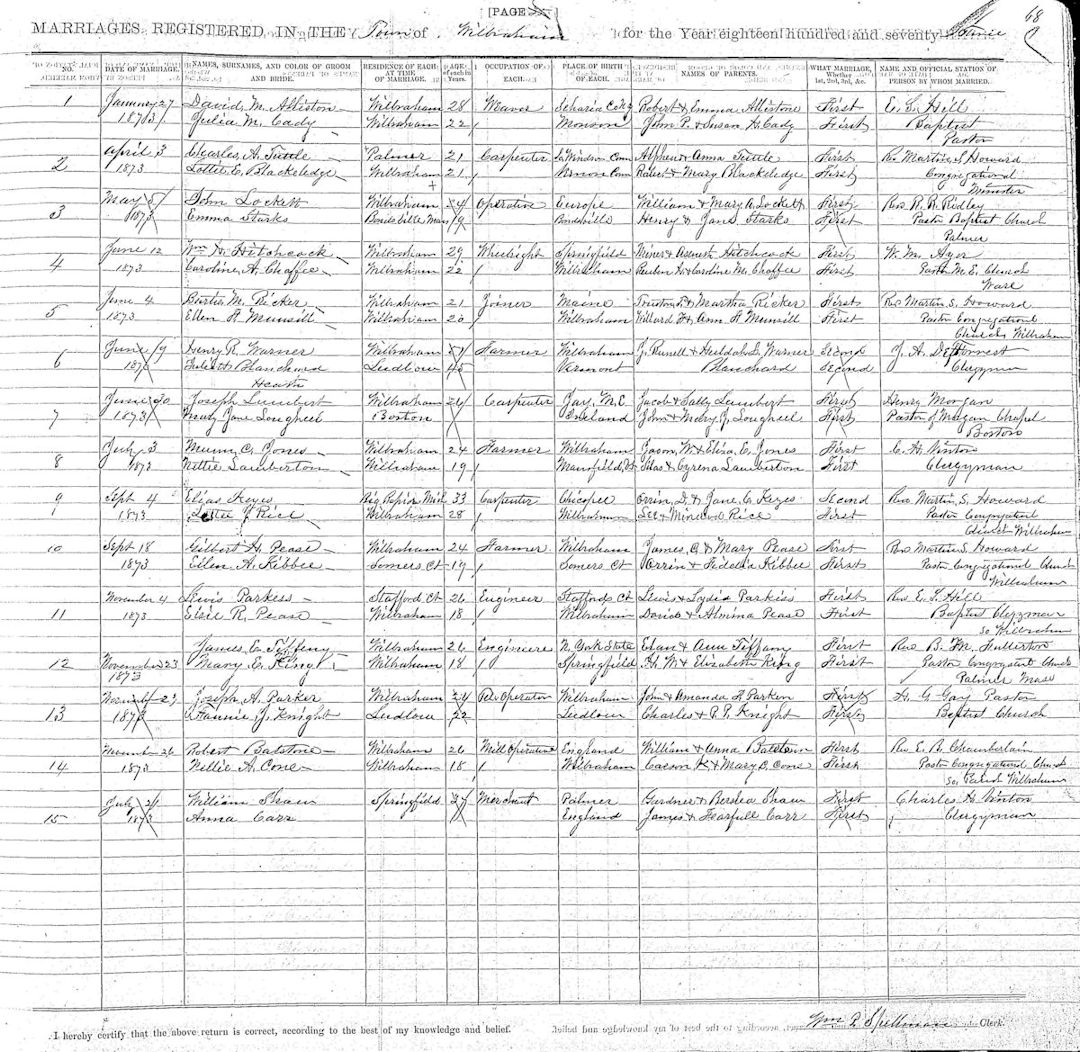 [PAGE
68
MARRIAGES REGISTERED IN THE Town of Wilbraham for the Year eighteen hundred and seventy three
NO. DATE OF MARRIAGE. NAMES, SURNAMES, AND COLOR OF GROOM AND BRIDE. RESIDENCE OF EACH AT TIME OF MARRIAGE. AGE of each in Years. OCCUPATION OF EACH. PLACE OF BIRTH OF EACH. NAMES OF PARENTS. WHAT MARRIAGE, Whether 1st, 2nd, 3rd, &c. NAME AND OFFICIAL STATION OF PERSON BY WHOM MARRIED.
1 January 27 David M. Alliston Wilbraham 28 Robert & Emma Allistone First E. S. Hill
1873 Julia M. Cady Wilbraham 22 Monson John P. & Susan H. Cady First Baptist
Pastor
2 April 3 Charles A. Tuttle Palmer 21 Carpenter So Windsor Conn & Anna Tuttle First Rev Martin S. Howard
1873 Lottie E. Blackeledge Wilbraham 21 Vernon Conn Robert & Mary Blackeledge First Congregational
Minister
3 May 5 John Lockett Wilbraham 24 Operative Europe William & Mary A. Lockett First Rev R. R. Ridley
1873 Emma Starks Bondsville Mass 19 Bondsville Henry & Jane Starks First Pastor Baptist Church
Palmer
4 June 12 Wm H. Hitchcock Wilbraham 29 Springfield Hitchcock First W. M. Ayer
1873 Caroline A. Chaffee Wilbraham 22 Wilbraham Reuben H. & Caroline M. Chaffee First Pastor M. E. Church
Ware
5 June 4 M. Ricker Wilbraham 21 Joiner Maine & Martha Ricker First Rev Martin S. Howard
1873 Ellen A. Munsill Wilbraham 20 Wilbraham Willard H. & Ann A. Munsill First Pastor Congregational
Church Wilbraham
6 June 19 Henry R. Warner Wilbraham Farmer Wilbraham & Huldah Warner Second
Blanchard Ludlow Vermont Blanchard Second Clergyman
Heath
7 June 30 Joseph Lambert Wilbraham 26 Carpenter Jay, M. E. Jacob & Sally Lambert First Henry Morgan
1873 Mary Jane Lougheed Boston Ireland John & Mary J. Lougheed First Pastor of Morgan Chapel
Boston
8 July 3 C. Jones Wilbraham 24 Farmer Wilbraham Jason W. & Eliza C. Jones First C. H. Vinton
1873 Nettie Lamberton Wilbraham 19 Silas & Cyrena Lamberton First Clergyman
9 Sept 4 Elias Keyes Big Rapids Mich 33 Carpenter Chicopee Orrin D. & Jane C. Keyes Second Rev Martin S. Howard
1873 Lottie J. Rice Wilbraham 28 Wilbraham Rice First Pastor Congregational
Church Wilbraham
10 Sept 18 Gilbert H. Pease Wilbraham 24 Farmer Wilbraham James C. & Mary Pease First Rev Martin S. Howard
1873 Ellen A. Kibbee Somers Ct 19 Somers Ct Orrin & Fidelia Kibbee First Pastor Congregational Church
Wilbraham
11 November 4 Lewis Parkess Stafford Ct 26 Engineer Stafford Ct Lewis & Lydia Parkiss First Rev E. S. Hill
1873 Elsie R. Pease Wilbraham 18 Wilbraham & Almina Pease First Baptist Clergyman
So Wilbraham
12 James E. Tiffeny Wilbraham 26 Engineer N. York State & Ann Tiffany First Rev B. M.
November 23 Mary E. King Wilbraham 18 Springfield H. W. & Elizabeth King First Pastor Congregational Church
1873 Palmer Mass
13 November 27 Joseph A. Parker Wilbraham 24 Operator Wilbraham John & Amanda A. Parker First H. G. Gay Pastor
1873 Fannie J. Knight Ludlow 22 Ludlow Charles & P. P. Knight First Baptist Church
14 November 26 Robert Batstone Wilbraham 26 Mill Operative England William & Anna Batstone First Rev E. R. Chamberlain
1873 Nellie A. Cone Wilbraham 18 Wilbraham & Mary C. Cone First Pastor Congregational Church
So. Parish Wilbraham
15 July 21 William Shaw Springfield 37 Merchant Palmer Gardner & Shaw First Charles H. Vinton
1873 Anna Carr England James & Carr First Clergyman
I hereby certify that the above return is correct, according to the best of my knowledge and belief. Wm P. Spellman Clerk.